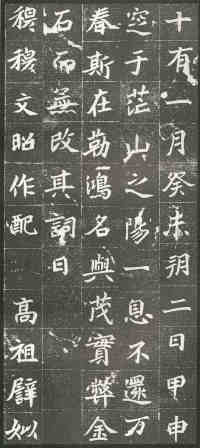 十有一月癸未朔二日甲申
窆于茫山之陽一息不還万
春斯在勒鴻名與茂實弊金
石而無改其詞曰
穆穆文昭作配　高祖譬姒